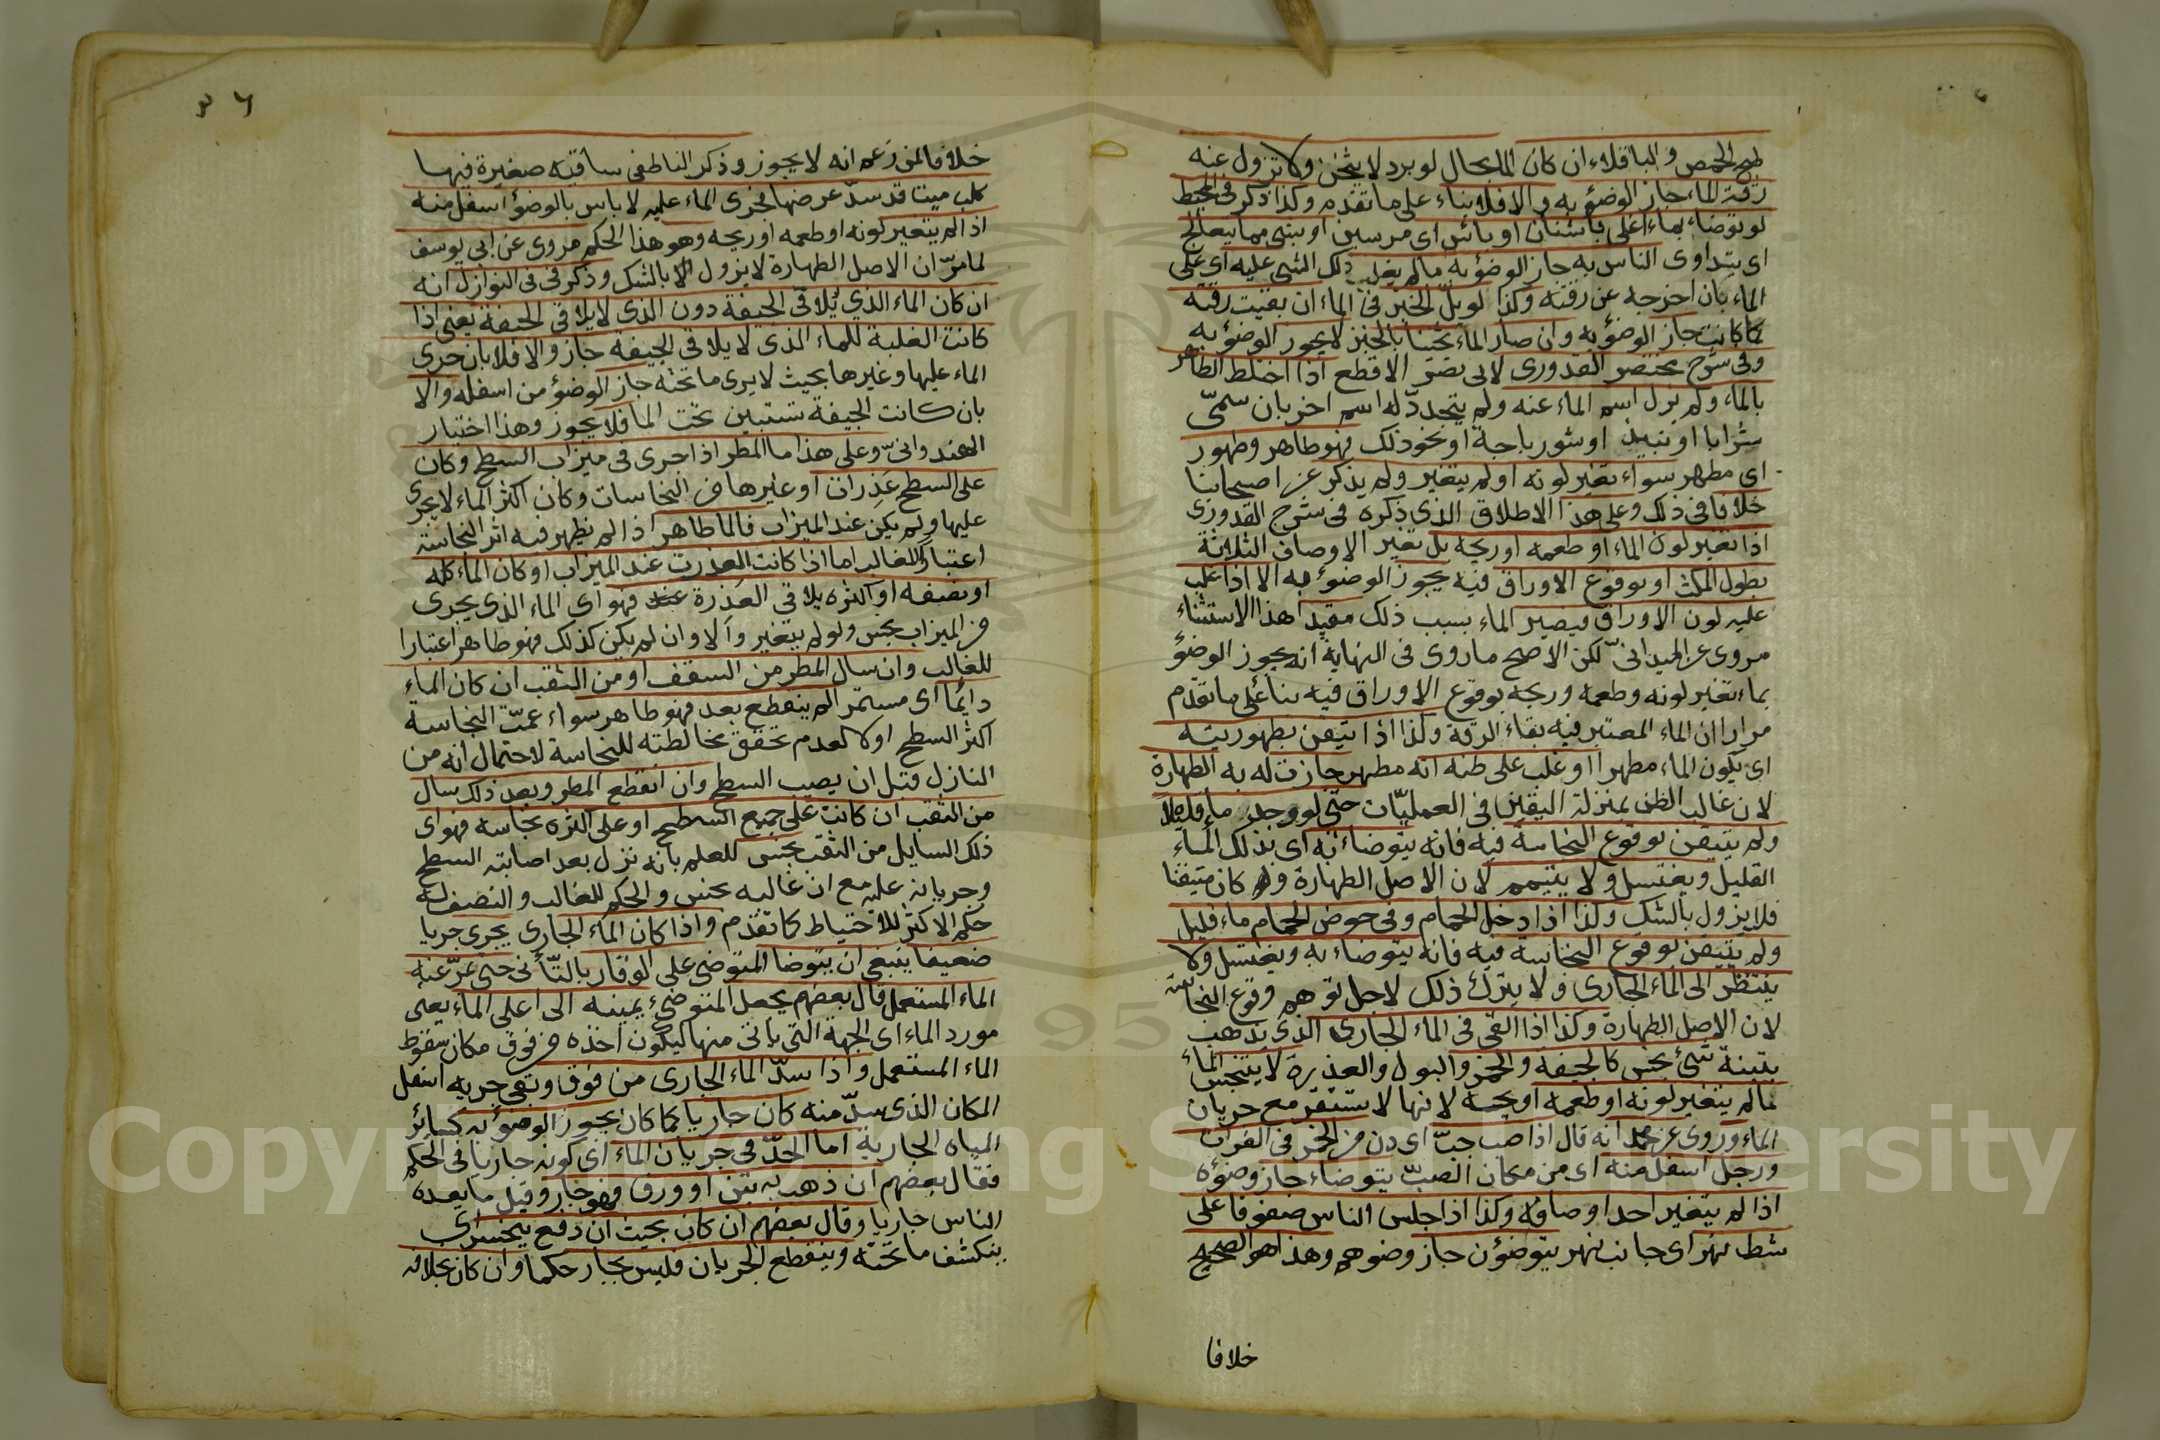 طبخ الحمص والباقلاء ان كان الما بحال لو برد لا يثخن ولا تزول عنه
رقة الماء جاز الوضؤ به والا فلا بناء على ما تقدم وكذا ذكر فى المحيط
لو توضاء بماء اغلى باشنان او باس اى مرسين او بشى مما يتعالج
اى يتداوى الناس به جاز الوضؤ به ما لم يغلب ذلك الشى عليه اى على
الماء بان اخرجه عن رقته وكذا لو بل الخبز فى الماء ان بقيت رقته
كما كانت جاز الوضؤ به وان صار الماء ثخينا بالخبز لا يجوز الوضؤ به
وفى شرح مختصر القدورى لابى نصر الاقطع اذا اختلط الطاهر
بالماء ولم يزل اسم الماء عنه ولم يتجدد له اسم اخر بان سمى
شرابا او نبيذ او شورباجة او نحو ذلك فهو طاهر وطهور
اى مطهر سواء تغير لونه او لم يتغير ولم يذكر عن اصحابنا
خلافا فى ذلك وعلى هذا الاطلاق الذى ذكره فى شرح القدورى
اذا تغير لون الماء او طعمه او ريحه بل تغير الاوصاف الثلاثة
بطول المكث او بوقوع الاوراق فيه يجوز الوضوء به الا اذا غلب
عليه لون الاوراق فيصير الماء بسبب ذلك مقيدا هذا الاستثناء
مروى عن الميدانى لكن الاصح ما روى فى النهاية انه يجوز الوضؤ
بماء تغير لونه وطعمه وريحه بوقوع الاوراق فيه بناء على ما تقدم
مرارا ان الماء المعتبر فيه بقاء الرقة وكذا اذا تيقن بطهوريته
اى يكون الماء مطهرا او غلب على ظنه انه مطهر جازت له به الطهارة
لان غالب الظن بمنزلة اليقين فى العمليات حتى لو وجد ماء قليلا
ولم يتيقن بوقوع النجاسة فيه فانه يتوضاء به اى بذلك الماء
القليل ويغتسل ولا يتيمم لان الاصل الطهارة وقد كان متيقنا
فلا يزول بالشك وكذا اذا دخل الحمام وفى حوض الحمام ماء قليل
ولم يتيقن بوقوع النجاسة فيه فانه يتوضاء به ويغتسل ولا
ينتظر الى الماء الجارى ولا يترك ذلك لاجل توهم وقوع النجاسة
لان الاصل الطهارة وكذا اذا القى فى الماء الجارى الذى يذهب
بتبنة شئ نجس كالجيفة والخمر والبول والعذرة لا يتنجس الماء
ما لم يتغير لونه او طعمه او ريحه لانها لا تستقر مع جريان
الماء وروى عن محمد انه قال اذا صب جب اى دن من الخمر فى الفرات
ورجل اسفل منه اى من مكان الصب يتوضاء جاز وضؤه
اذا لم يتغير احد اوصافه وكذا اذا جلس الناس صفوفا على
شط نهر اى جانب نهر يتوضؤن جاز وضوهم وهذا هو الصحيح
خلافا
٣٦
خلافا لمن زعم انه لا يجوز وذكر الناطفى ساقية صغيرة فيها
كلب ميت قد سد عرضها فجرى الماء عليه لا باس بالوضؤ اسفل منه
اذا لم يتغير لونه او طعمه او ريحه وهو هذا الحكم مروى عن ابى يوسف
لما مر ان الاصل الطهارة لا يزول الا بالشك وذكر فى فى النوازل انه
ان كان الماء الذي يلاقى الجيفة دون الذى لا يلاقى الجيفة يعنى اذا
كانت الغلبة للماء الذى لا يلاقى الجيفة جاز والا فلا بان جرى
الماء عليها وغيرها بحيث لا يرى ما تحته جاز الوضؤ من اسفله والا
بان كانت الجيفة تستبين تحت الما فلا يجوز وهذا اختيار
الهندوانى وعلى هذا ما المطر اذا جرى فى ميزاب السطح وكان
على السطح عذرات او غيرها من النجاسات وكان اكثر الماء لا يجرى
عليها ولم يكن عند الميزاب فالما طاهر اذا لم يظهر فيه اثر النجاسة
اعتبارا للغالب اما اذا كانت العذرت عند الميزاب او كان الماء كله
او نصفه او اكثره يلاقى العذرة فهو اى الماء الذى يجرى
من الميزاب نجس ولو لم يتغير والا وان لم يكن كذلك فهو طاهر اعتبارا
للغالب وان سال المطر من السقف او من الثقب ان كان الماء
دايما اى مستمرا لم ينقطع بعد فهو طاهر سواء عمت النجاسة
اكثر السطح او لا لعدم تحقق مخالطته للنجاسة لاحتمال انه من
النازل قبل ان يصيب السطح وان انقطع المطر وبعد ذلك سال
من الثقب ان كانت على جميع السطح او على اكثره نجاسة فهو اى
ذلك السايل من الثقب نجس للعلم بانه نزل بعد اصابته السطح
وجريانه عليه مع ان غالبه نجس والحكم للغالب والنصف له
حكم الاكثر للاحتياط كما تقدم واذا كان الماء الجارى يجرى جريا
ضعيفا ينبغى ان يتوضا المتوضى على الوقار بالتأنى حتى عنه
الماء المستعمل قال بعضهم يجعل المتوضئ يمينه الى اعلى الماء يعنى
مورد الماء اى الجهة التى ياتى منها ليكون اخذه من فوق مكان سقوط
الماء المستعمل واذا سد الماء الجارى من فوق وبقى جريه اسفل
المكان الذى سد منه كان جاريا كما كان يجوز الوضؤ به كسائر
المياه الجارية اما الحد فى جريان الماء اى كونه جاريا فى الحكم
فقال بعضهم ان ذهب به تبن او ورق فهو جار وقيل ما يعده
الناس جاريا وقال بعضهم ان كان بحيث ان دفع ينحسر اى
ينكشف ما تحته وينقطع الجريان فليس بجار حكما وان كان بخلافه
Copyright © King Saud University